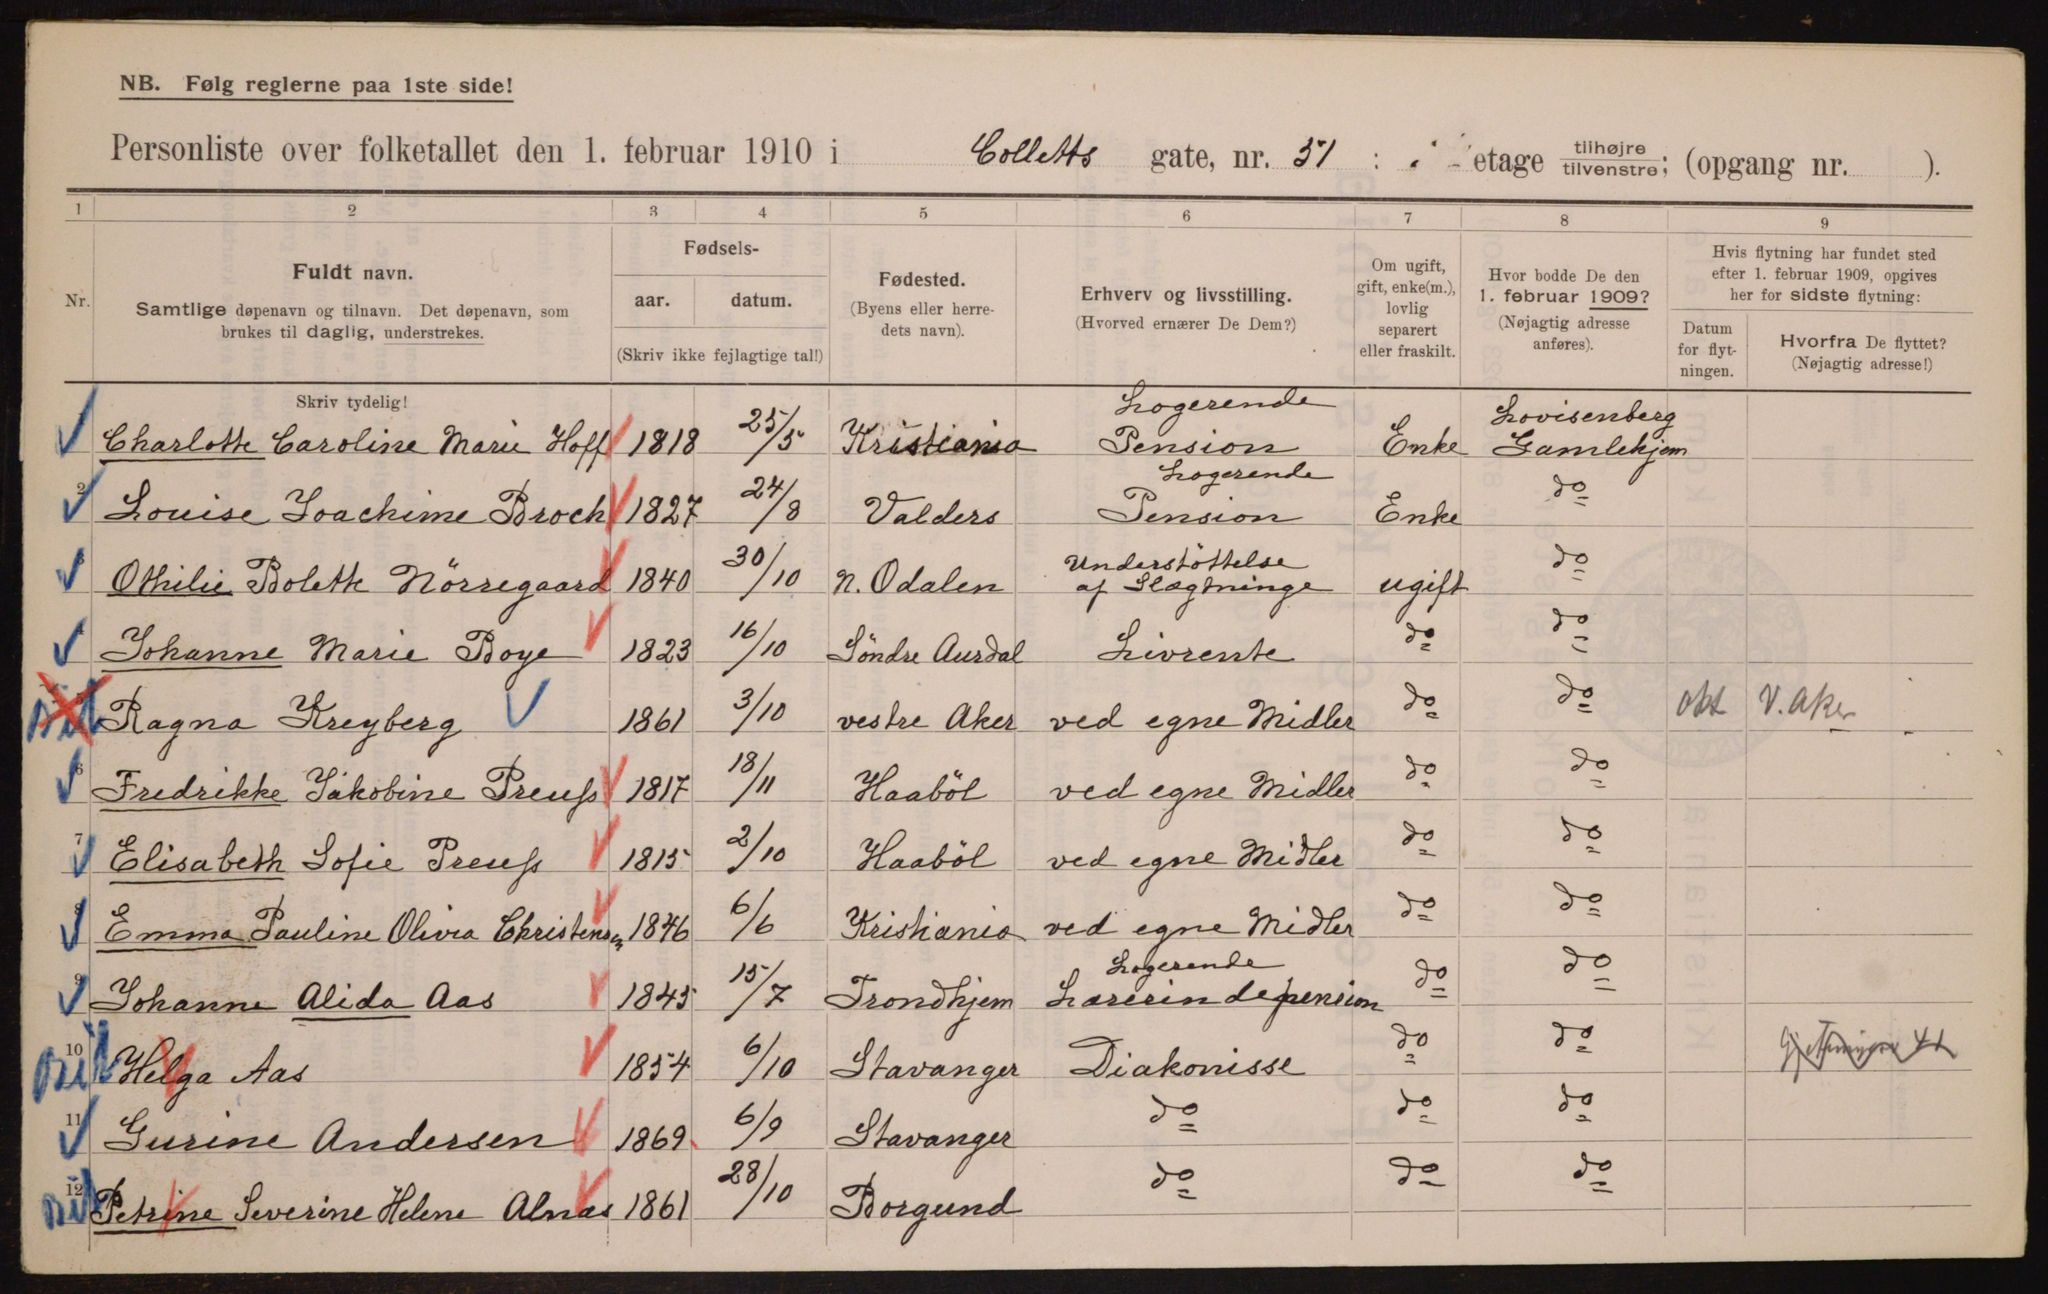 NB. Følg reglerne paa 1ste side!
Personliste over folketallet den 1. februar 1910 i Colletts gate, nr. 51 : etage tilhøjre/tilvenstre; (opgang nr. ).
1 2 3 4 5 6 7 8 9
Nr.
Fuldt navn.
Samtlige døpenavn og tilnavn. Det døpenavn, som
brukes til daglig, understrekes.
Skriv tydelig!
Fødsels-
aar. datum.
(Skriv ikke fejlagtige tal!)
Fødested.
(Byens eller herre-
dets navn).
Erhverv og livsstilling.
(Hvorved ernærer De Dem?)
Om ugift,
gift, enke(m.),
lovlig
separert
eller fraskilt.
Hvor bodde De den
1. februar 1909?
(Nøjagtig adresse
anføres).
Hvis flytning har fundet sted
efter 1. februar 1909, opgives
her for sidste flytning:
Datum
for flyt-
ningen.
Hvorfra De flyttet?
(Nøjagtig adresse!)
Charlotte Caroline Marie Hoff 1818 25/5 Kristiania Logerende Pension Enke Lovisenberg Gamlehjem
2 Louise Joachime Broch 1827 24/8 Valders Logerende Pension Enke do
Othilie Bolette Nörregaard 1840 30/10 N. Odalen Understöttelse af Slægtninge ugift do
Johanne Marie Boye 1823 16/10 Söndre Aurdal Livrente do do
Ragna Kreyberg 1861 3/10 vestre Aker ved egne Midler do do okt V. Aker
6 Fredrikke Jakobine Preuss 1817 18/11 Haaböl ved egne Midler do do
7 Elisabeth Sofie Preuss 1815 2/10 Haaböl ved egne Midler do do
8 Emma Pauline Olivia Christensen 1846 6/6 Kristiania ved egne Midler do do
9 Johanne Alida Aas 1845 15/7 Trondhjem Logerende Lærerindepension do do
10 Helga Aas 1854 6/10 Stavanger Diakonisse do do
11 Gurine Andersen 1869 6/9 Stavanger do do do
12 Petrine Severine Helene Alnæs 1861 28/10 Borgund do do do